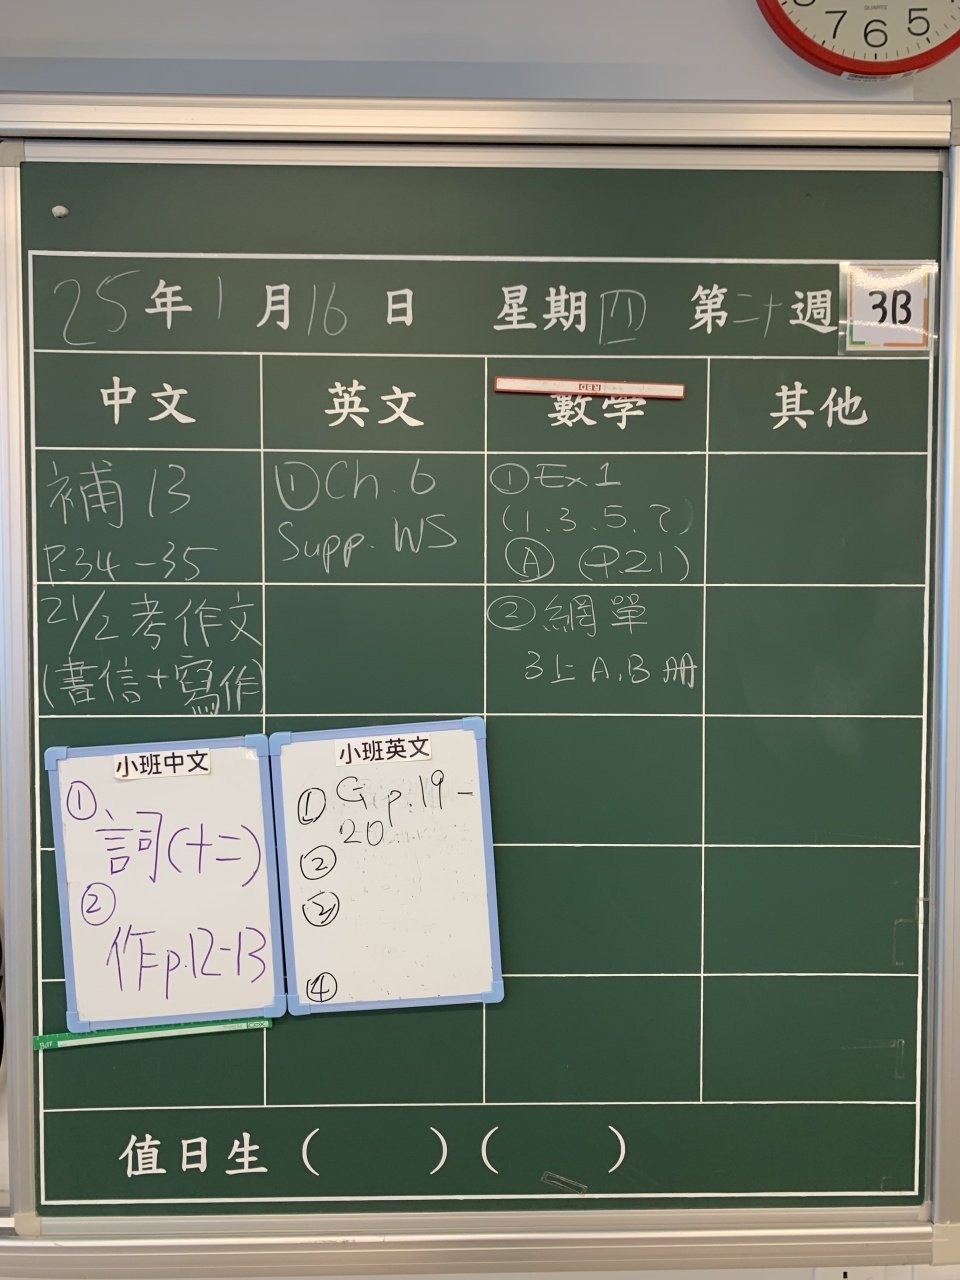 QUARTZ
7 6 5
25年1月16日 星期四 第二十週 3B
中文 英文 數學 其他
RED
補13
P.34-35
21/2考作文
(書信+寫作)
①Ch.6
Supp. WS
①Ex1
(1.3.5.7)
Ⓐ (P.21)
②網單
3上A.B冊
小班中文
①
詞(十二)
②
作p.12-13
小班英文
① G p.19-
20
②
③
④
值日生( )( )